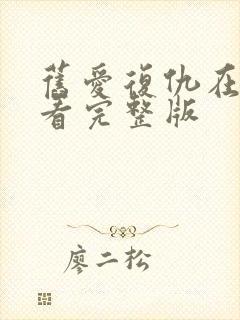 舊愛復仇在
看完整版
廖二松